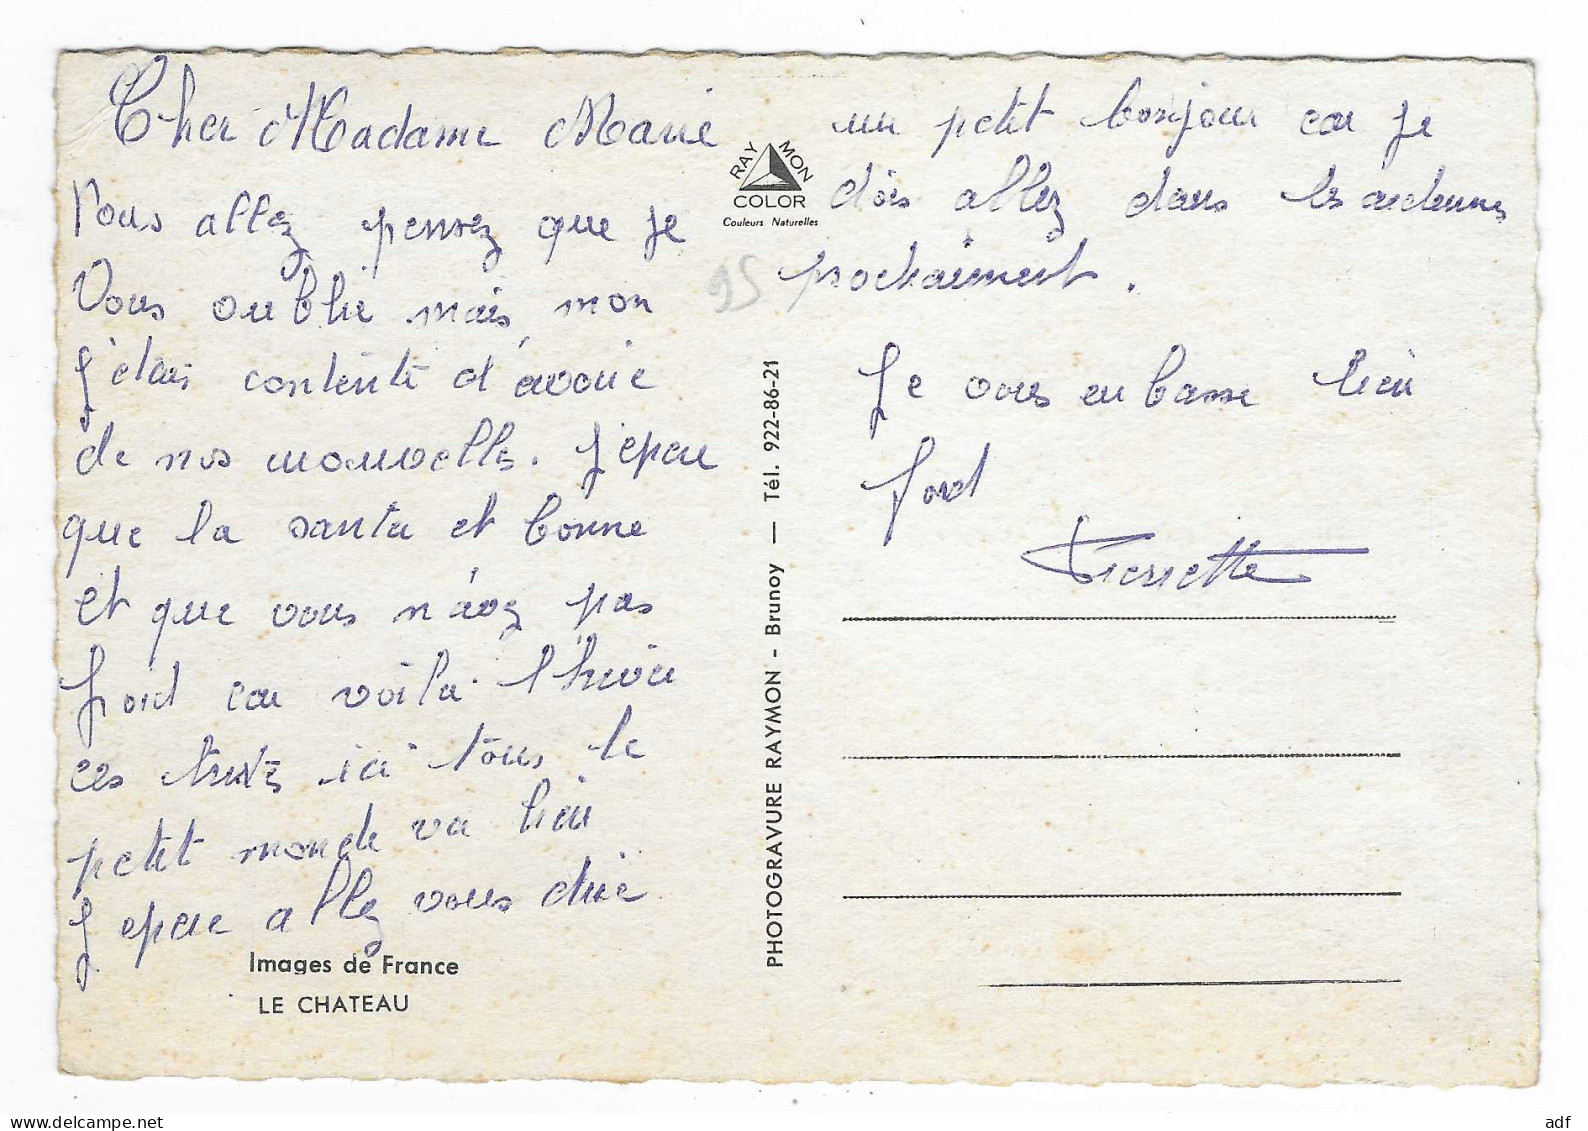 Cher Madame Marie
Vous allez pensez que je
Vous oublie mais mon
j'etais contente d'avoir
de nos nouvelles. J'epere
que la santer et bonne
et que vous n'avez pas
froid car voila l'hiver
ces triste ici tous le
petit monde va bien
J epere allez vous dire
un petit bonjour car je
dois allez dans les ardennes
prochaiment.
Je vous enbasse bien
ford
Pierrette
RAYMON
COLOR
Couleurs Naturelles
95
PHOTOGRAVURE RAYMON - Brunoy — Tél. 922-86-21
Images de France
LE CHATEAU
delcampe.net
adf